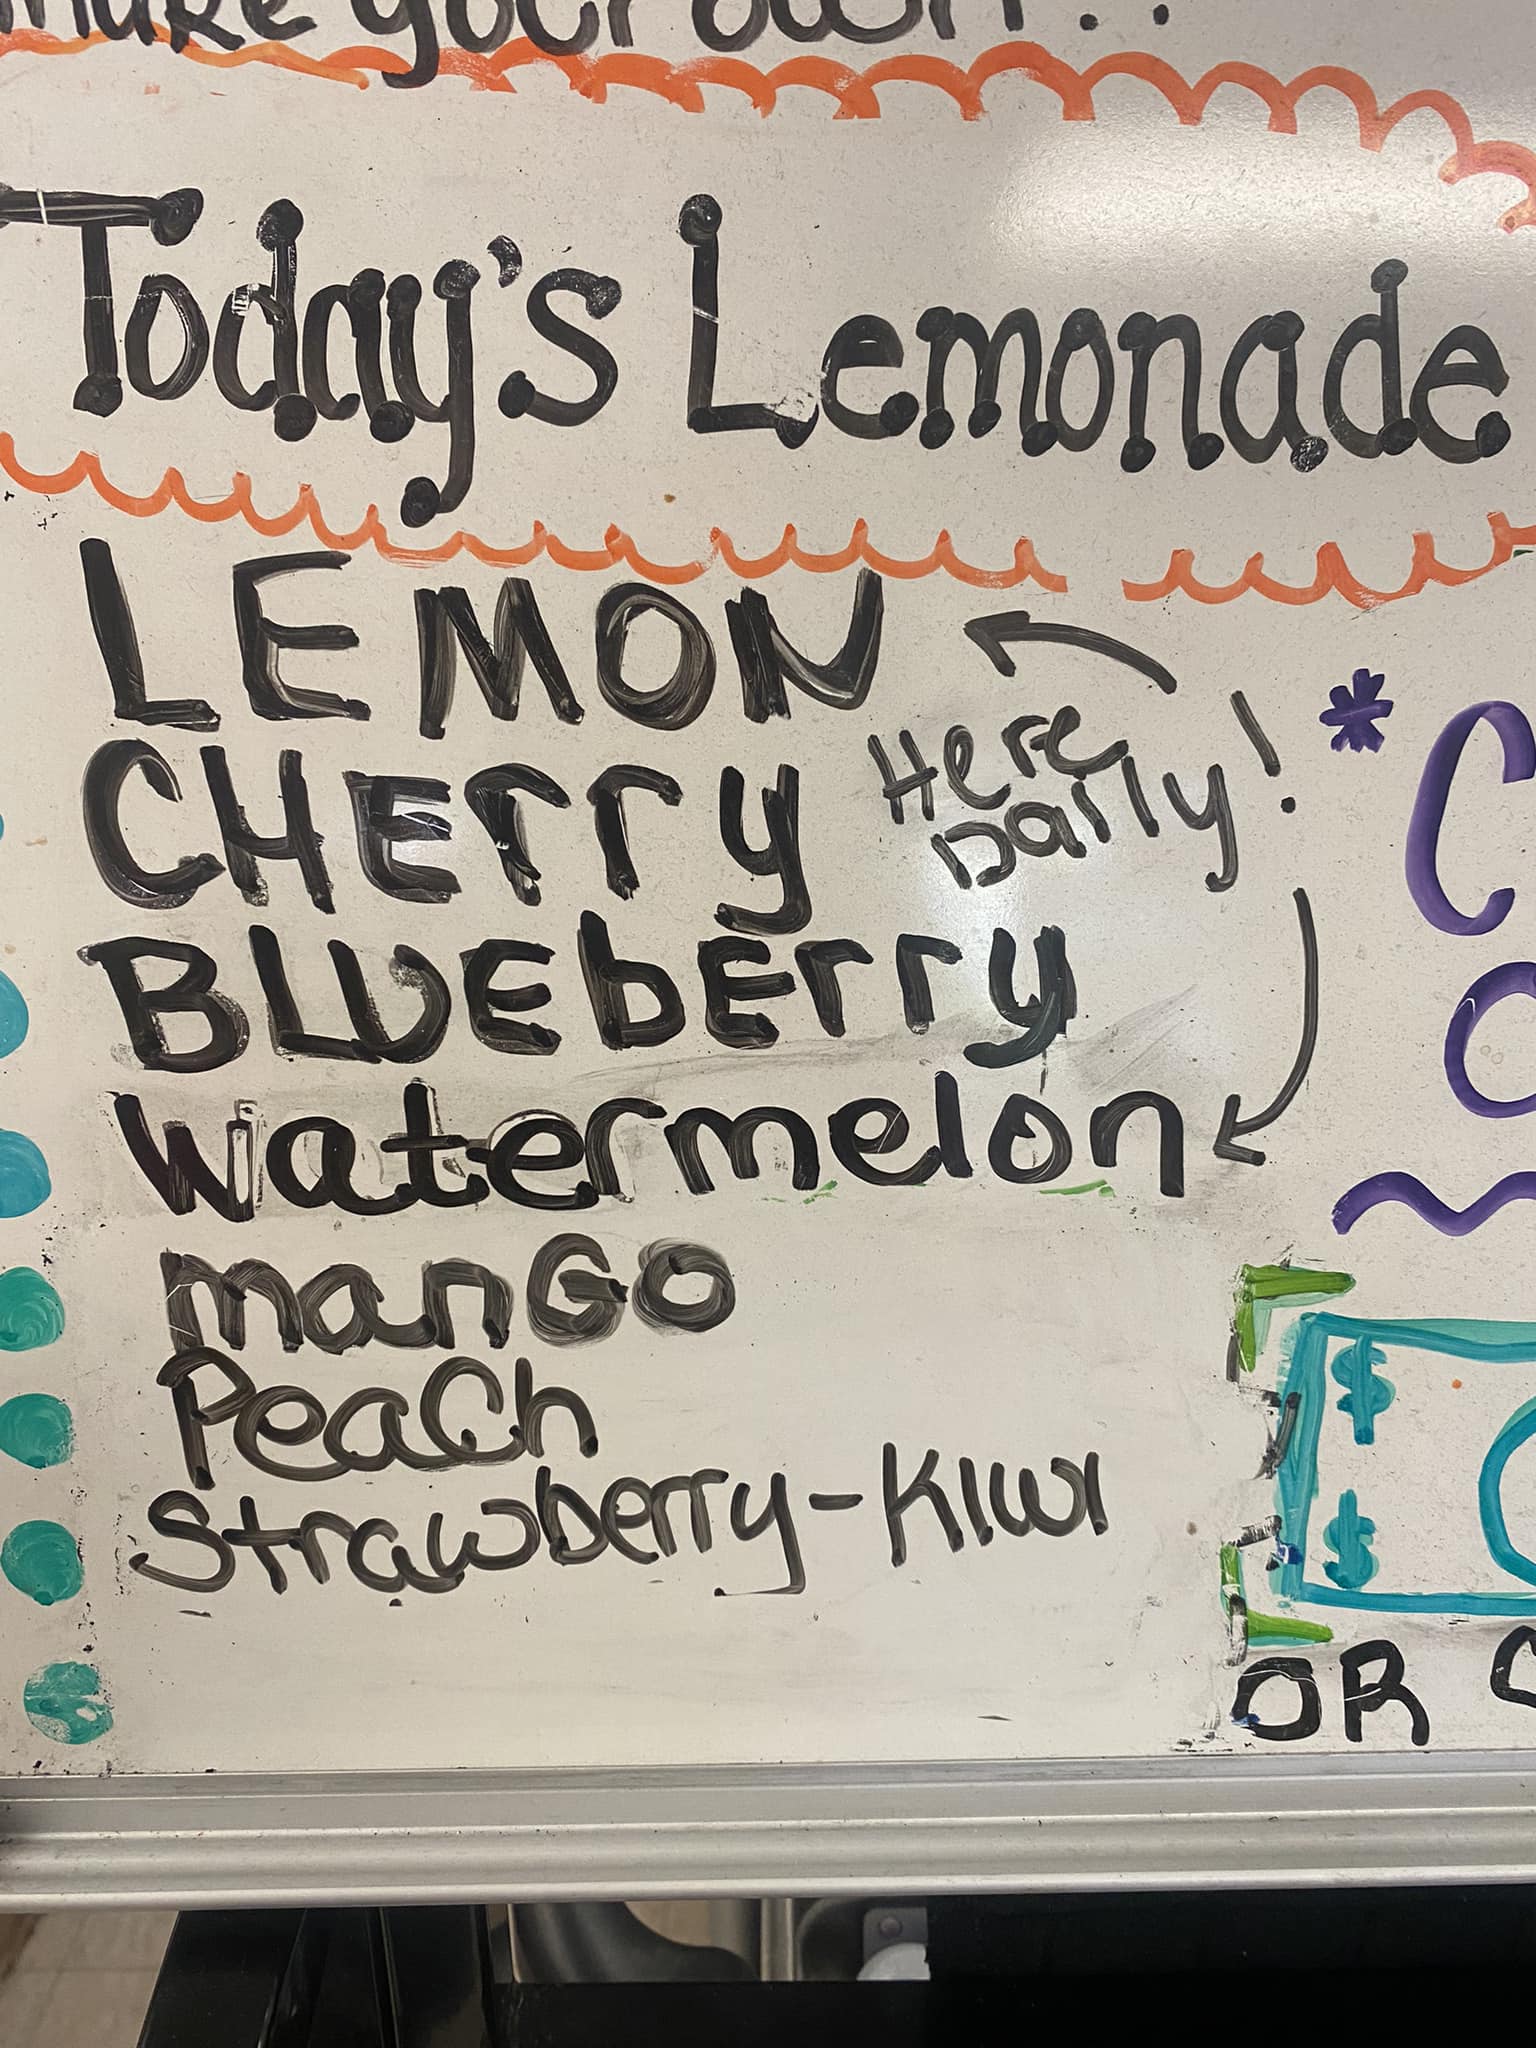 make your own!!
Today's Lemonade
LEMON
CHErry
Here
Daily!
BLUEbErry
Watermelon
manGo
PeaCh
Strawberry-Kiwi
*C
$
$
OR